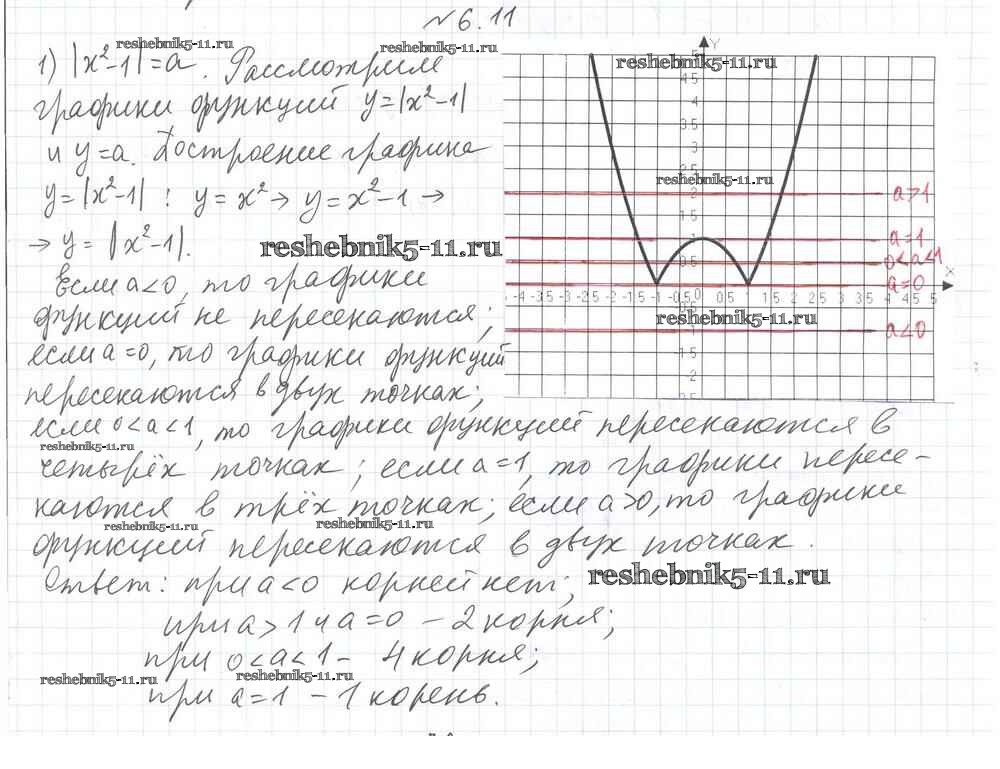 № 6.11
1) |x²-1|=a. Рассмотрим
графики функций y=|x²-1|
и y=a. Построение графика
y=|x²-1| : y=x² → y=x²-1 →
→ y=|x²-1|.
Если a<0, то графики
функций не пересекаются;
если a=0, то графики функций
пересекаются в двух точках;
если 0<a<1, то графики функций пересекаются в
четырёх точках; если a=1, то графики пересе-
каются в трёх точках; если a>0, то графики
функций пересекаются в двух точках.
Ответ: при a<0 корней нет;
при a>1 и a=0 - 2 корня;
при 0<a<1 - 4 корня;
при a=1 - 1 корень.
Y
5
4.5
4
3.5
3
2.5
1.5
1
0.5
a>1
a=1
0<a<1
a=0
a<0
X
-4 -3.5 -3 -2.5 -2 -1.5 -1 -0.5 0 0.5 1 1.5 2 2.5 3 3.5 4 4.5 5
-1.5
-2
reshebnik5-11.ru
reshebnik5-11.ru
reshebnik5-11.ru
reshebnik5-11.ru
reshebnik5-11.ru
reshebnik5-11.ru
reshebnik5-11.ru
reshebnik5-11.ru
reshebnik5-11.ru
reshebnik5-11.ru
reshebnik5-11.ru
reshebnik5-11.ru